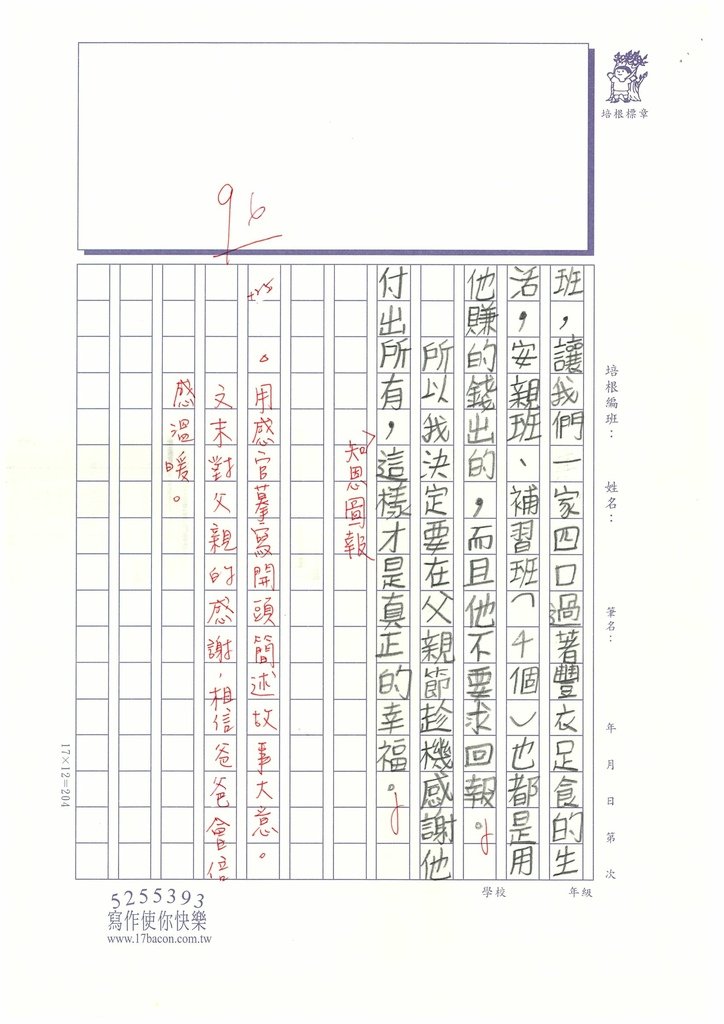 培根標章
培根編班：　姓名：　筆名：　年　月　日　第　次
學校　年級
96
班，讓我們一家四口過著豐衣足食的生
活，安親班、補習班（4個）也都是用
他賺的錢出的，而且他不要求回報。
所以我決定要在父親節趁機感謝他
付出所有，這樣才是真正的幸福。
知恩圖報
。用感官摹寫開頭簡述故事大意。
文末對父親的感謝，相信爸爸會倍
感溫暖。
17×12=204
5255393
寫作使你快樂
www.17bacon.com.tw